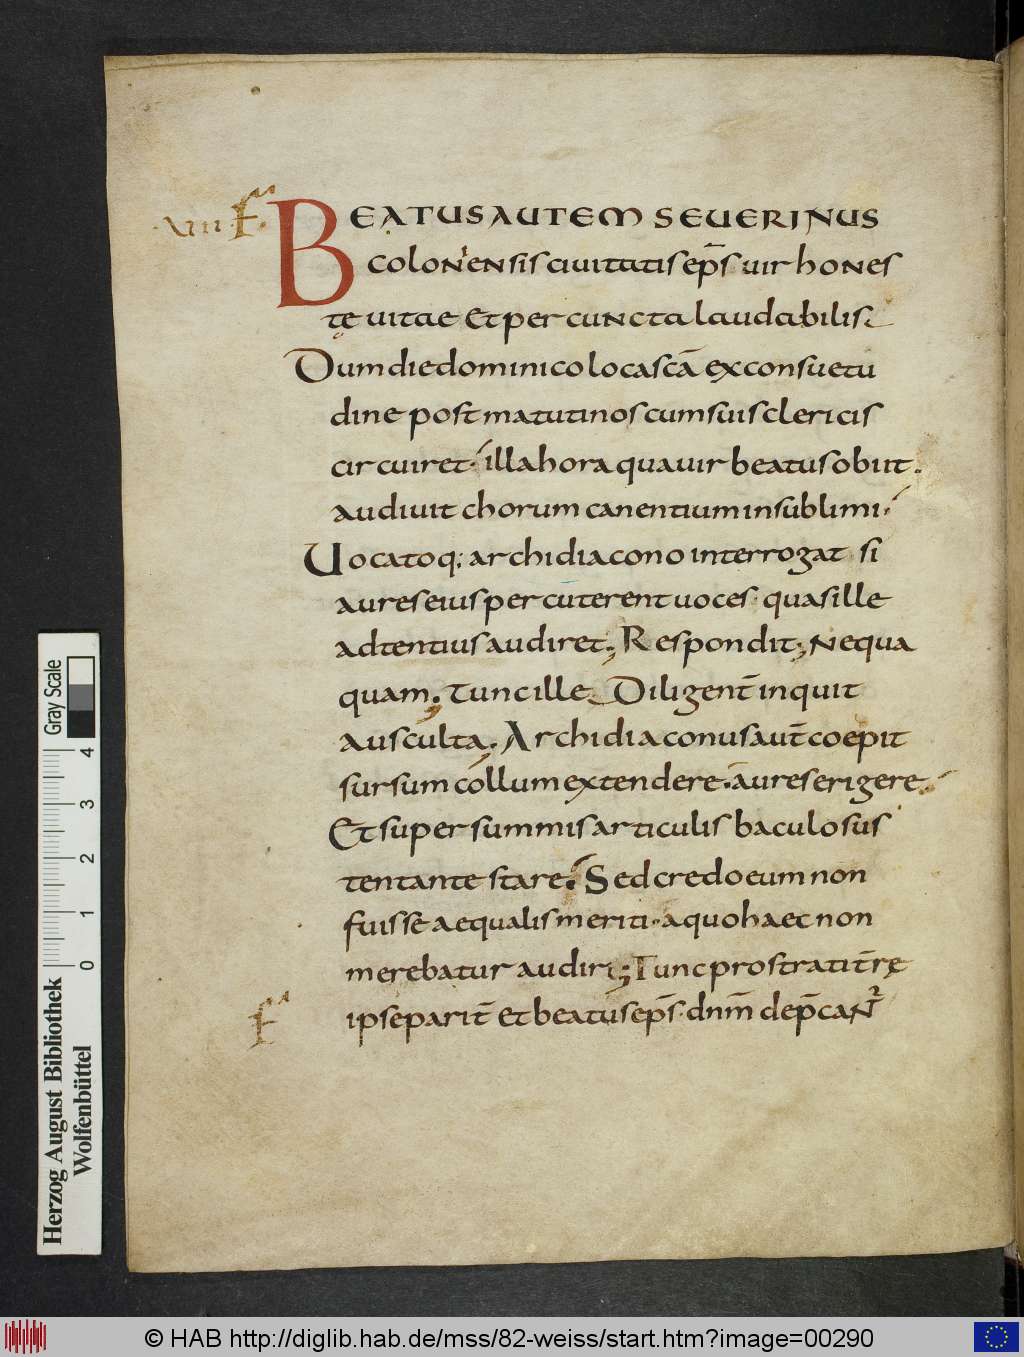 VIII F
BEATUS AUTEM SEUERINUS
colonensis ciuitatis ep̄s uir hones
tę uitae et per cuncta laudabilis.
Dum die dominico loca sc̄a ex consuetu
dine post matutinos cum suis clericis
circuiret· illa hora qua uir beatus obiit.
audiuit chorum canentium in sublimi·
Uocatoq; archidiacono interrogat si
aures eius percuterent uoces quas ille
adtentius audiret; Respondit; Nequa
quam; Tunc ille Diligent̄ inquit
ausculta; Archidiaconus aut̄ coepit
sursum collum extendere· aures erigere·
Et super summis articulis baculo sus
tentante stare; Sed credo eum non
fuisse aequalis meriti· a quo haec non
merebatur audiri; Tunc prostrati t̄rę
ipse parit̄ et beatus ep̄s· dnm̄ dep̄canr̄
F
Herzog August Bibliothek
Wolfenbüttel
0 1 2 3 4
Gray Scale
© HAB http://diglib.hab.de/mss/82-weiss/start.htm?image=00290